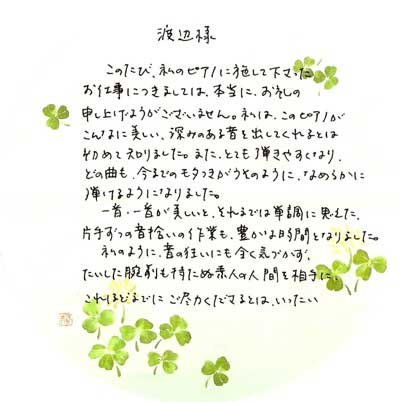 渡辺様
このたび、私のピアノに施して下さった
お仕事につきましては、本当に、お礼の
申し上げようがございません。私は、このピアノが
こんなに美しい、深みのある音を出してくれるとは
初めて知りました。また、とても弾きやすくなり、
どの曲も、今までのもたつきがうそのように、なめらかに
弾けるようになりました。
一音・一音が美しいと、それまでは単調に思えた、
片手ずつの音拾いの作業も、豊かな時間となりました。
私のように、音の狂いにも全く気づかず、
たいした腕前も持たぬ素人の人間を相手に、
これほどまでにご尽力くださるとは、いったい